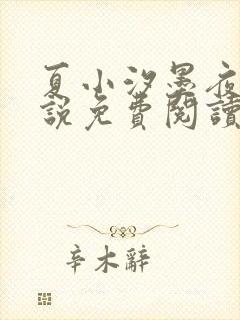 夏小汐墨夜
說免費閱讀
辛木辭